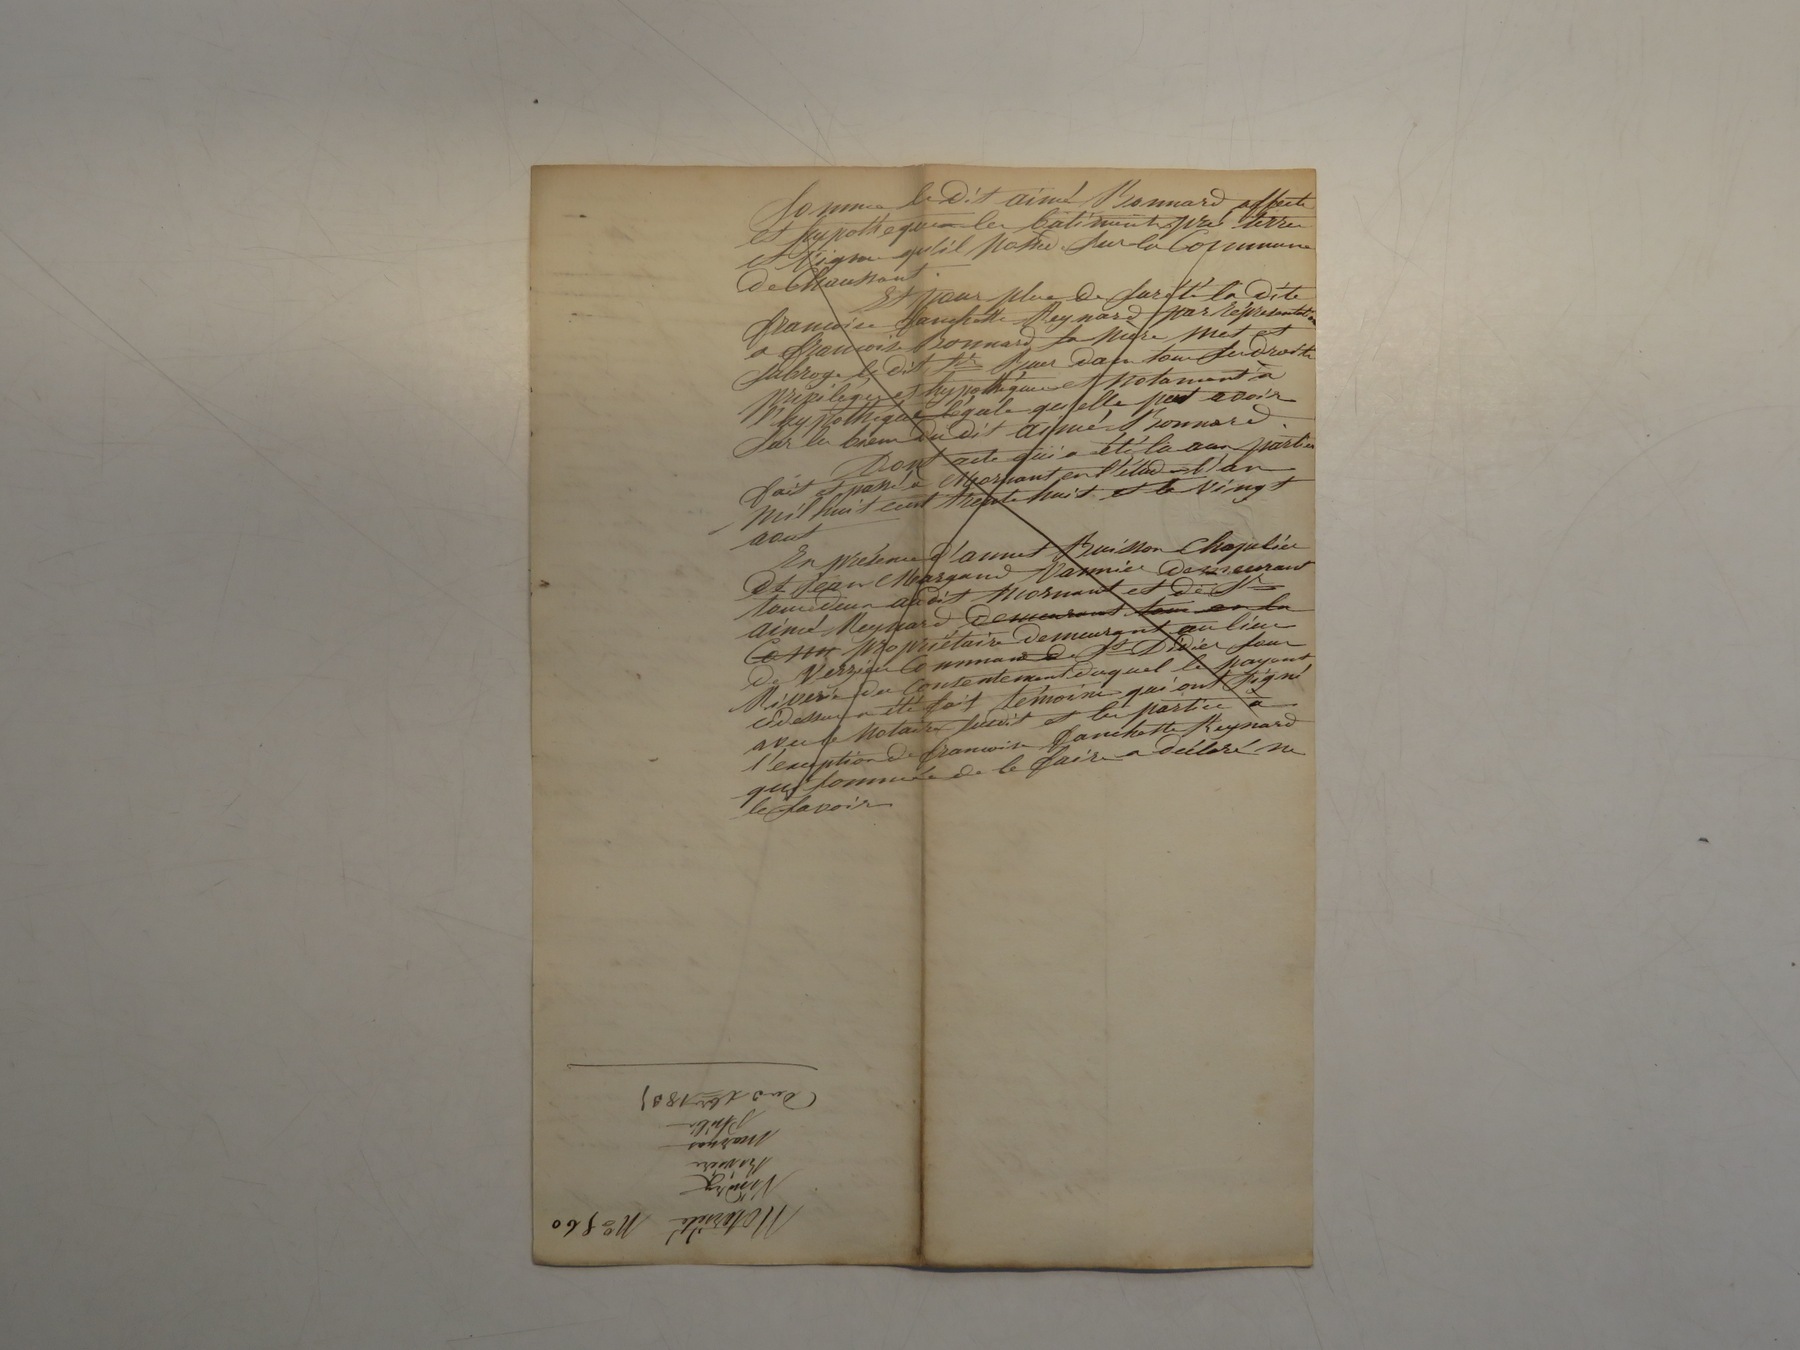 Somme le dit aimé Bonnard affecte
et hypothèque les batiments, pré terre
et vigne qu'il possède sur la Commune
de Chaussant.
Et pour plus de sureté la dite
francoise fanchette Reynard par représentation
a francoise Bonnard sa mère met et
subroge le dit Sr dans tous ses droits
privilèges et hypothèques et notament à
l'hypothèque légale qu'elle peut avoir
sur les biens du dit aimé Bonnard.
Dont acte qui a été lu aux parties
fait et passé à Mornant en l'étude l'an
mil huit cent trente huit et le vingt
aout
En présence d'annet Buisson Chapelier
et Jean Margand Vannier demeurant
tous deux audit Mornant et de Sr
aimé Reynard demeurant tous en la
Comm propriétaire demeurant au lieu
de Verzieu Commune de St Didier sous
Riverie du Contentement duquel le payent
cidessus a été fait témoins qui ont signé
avec le notaire susdit et les parties à
l'exception de francoise fanchette Reynard
qui sommée de le faire a déclaré ne
le savoir
Notoriété No 560
Vindry
Marnas